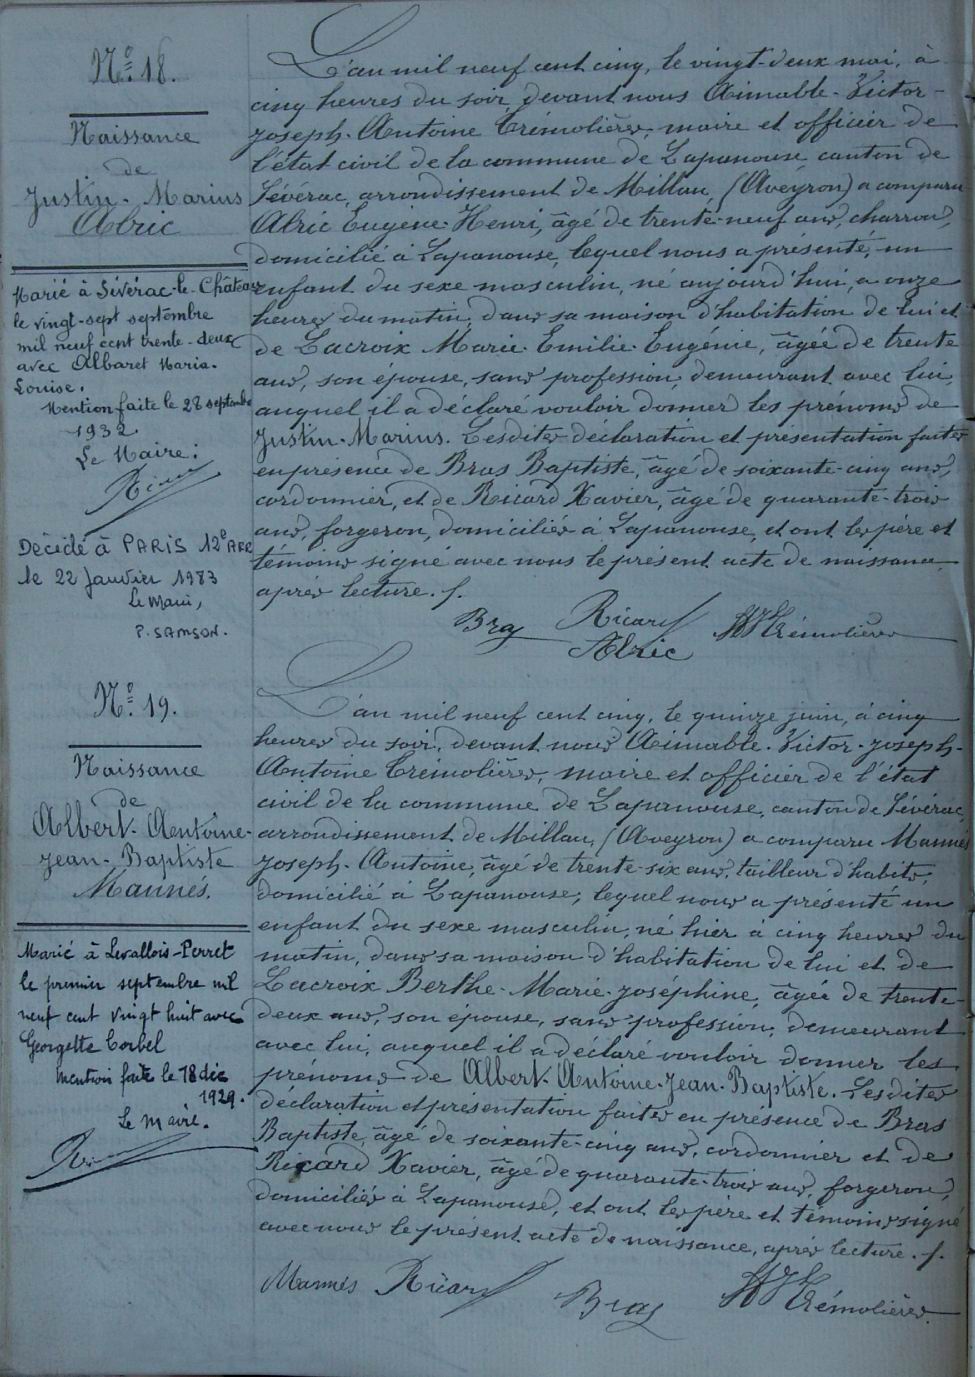 N° 18.
Naissance
de
Justin-Marius
Alric
Marié à Sévérac-le-Château
le vingt-sept septembre
mil neuf cent trente-deux
avec Albaret Maria-
Louise.
Mention faite le 28 septembre
1932.
Le Maire:
Décédé à PARIS 12e ARR
le 22 Janvier 1983
Le Maire,
P. SAMSON.
L'an mil neuf cent cinq, le vingt-deux mai, à
cinq heures du soir, devant nous Aimable-Victor-
Joseph-Antoine Trémolières, maire et officier de
l'état civil de la commune de Lapanouse, canton de
Sévérac, arrondissement de Millau, (Aveyron) a comparu
Alric Eugène-Henri, âgé de trente-neuf ans, charron,
domicilié à Lapanouse, lequel nous a présenté, un
enfant du sexe masculin, né aujourd'hui, à onze
heures du matin, dans sa maison d'habitation de lui et
de Lacroix Marie-Emilie-Eugénie, âgée de trente
ans, son épouse, sans profession, demeurant avec lui,
auquel il a déclaré vouloir donner les prénoms de
Justin-Marius. Lesdites déclaration et présentation faites
en présence de Bras Baptiste, âgé de soixante-cinq ans,
cordonnier, et de Ricard Xavier, âgé de quarante-trois
ans, forgeron, domiciliés à Lapanouse, et ont les père et
témoins signé avec nous le présent acte de naissance,
après lecture. /.
Bras Ricard Trémolières
Alric
N° 19.
Naissance
de
Albert-Antoine-
Jean-Baptiste
Mannés.
Marié à Levallois-Perret
le premier septembre mil
neuf cent vingt huit avec
Georgette Corbel
Mention faite le 18 déc
1929.
Le maire.
L'an mil neuf cent cinq, le quinze juin, à cinq
heures du soir, devant nous Aimable-Victor-Joseph-
Antoine Trémolières, maire et officier de l'état
civil de la commune de Lapanouse, canton de Sévérac,
arrondissement de Millau, (Aveyron) a comparu Mannés
Joseph-Antoine, âgé de trente-six ans, tailleur d'habits,
domicilié à Lapanouse, lequel nous a présenté un
enfant du sexe masculin, né hier à cinq heures du
matin, dans sa maison d'habitation de lui et de
Lacroix Berthe-Marie-Joséphine, âgée de trente-
deux ans, son épouse, sans profession, demeurant
avec lui, auquel il a déclaré vouloir donner les
prénoms de Albert-Antoine-Jean-Baptiste. Lesdites
déclaration et présentation faites en présence de Bras
Baptiste, âgé de soixante-cinq ans, cordonnier et de
Ricard Xavier, âgé de quarante-trois ans, forgeron,
domiciliés à Lapanouse, et ont les père et témoins signé
avec nous le présent acte de naissance, après lecture. /.
Mannés Ricard Bras Trémolières